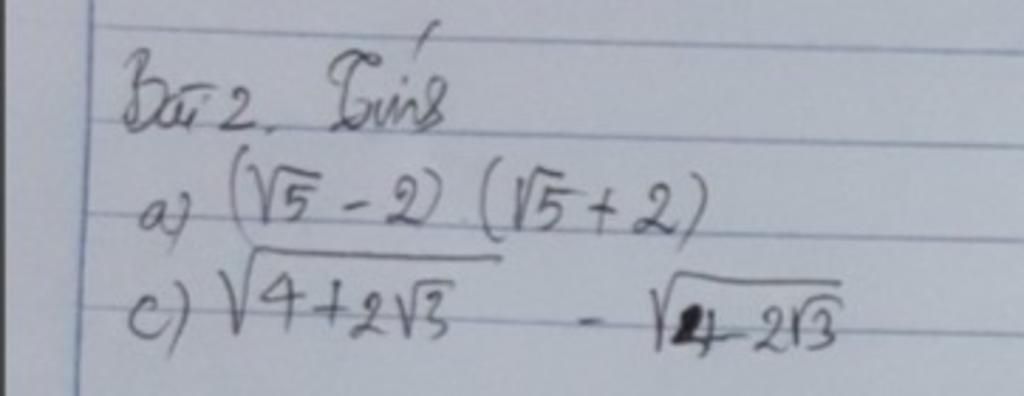 Bài 2. Tính
a) (√5 - 2) (√5 + 2)
c) √(4 + 2√3) - √(4 - 2√3)